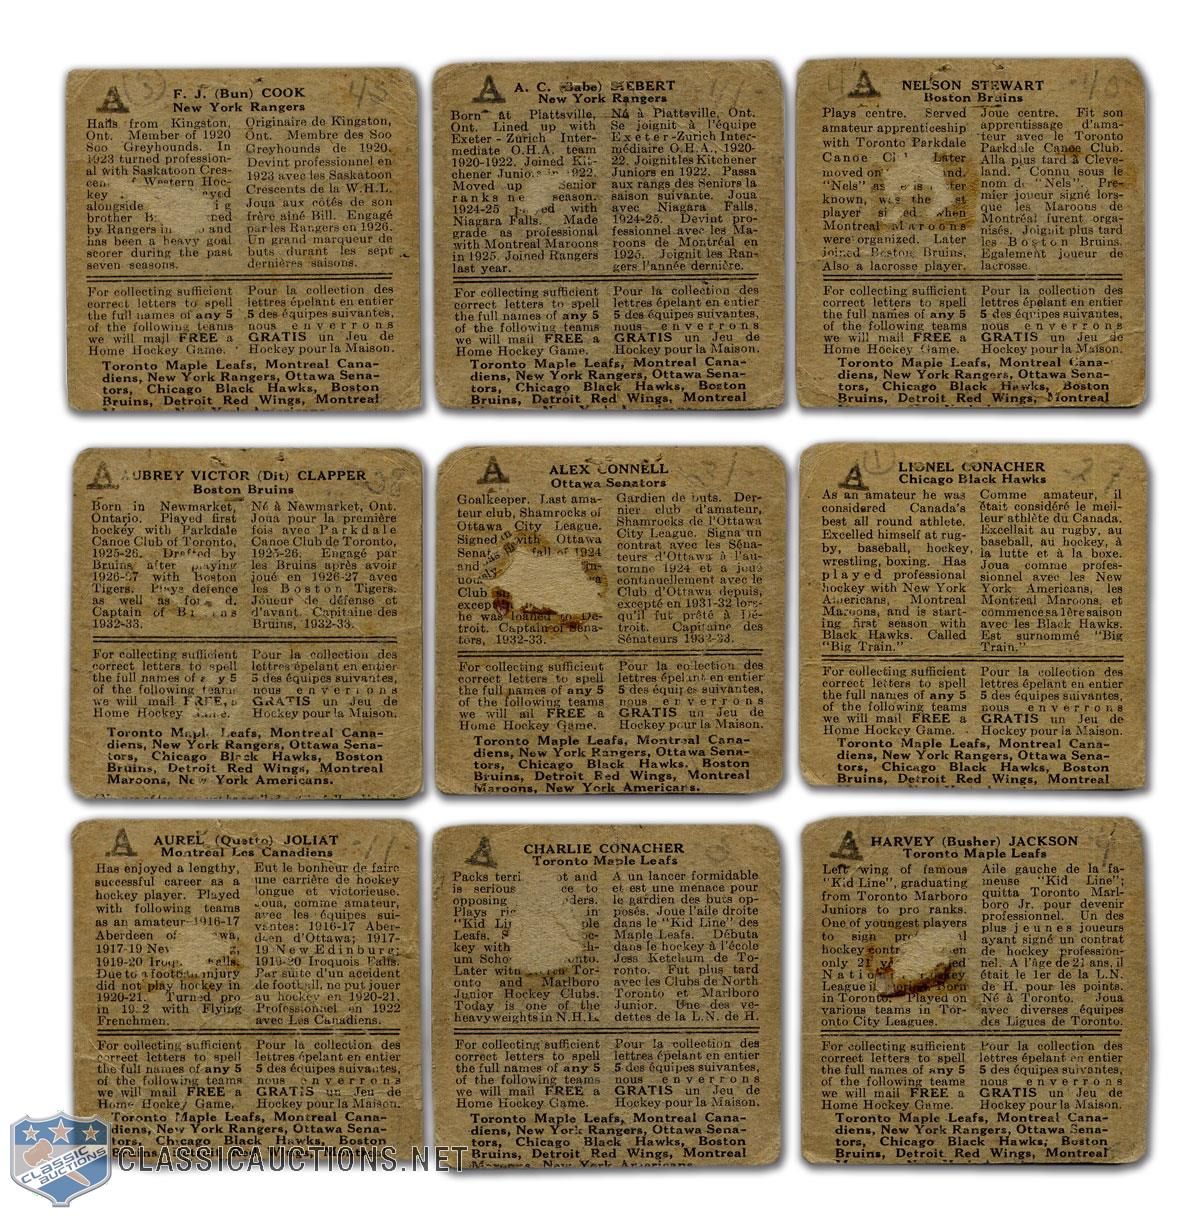 A
F. J. (Bun) COOK
New York Rangers
Hails from Kingston,
Ont. Member of 1920
Soo Greyhounds. In
1923 turned profession-
al with Saskatoon Cres-
of Western Hoc-
key
alongside
brother
by Rangers in and
has been a heavy goal
scorer during the past
seven seasons.
Originaire de Kingston,
Ont. Membre des Soo
Greyhounds de 1920.
Devint professionnel en
1923 avec les Saskatoon
Crescents de la W.H.L.
Joua aux côtés de son
frère aîné Bill. Engagé
par les Rangers en 1926.
Un grand marqueur de
buts durant les sept
dernières saisons.
For collecting sufficient
correct letters to spell
the full names of any 5
of the following teams
we will mail FREE a
Home Hockey Game.
Pour la collection des
lettres épelant en entier
5 des équipes suivantes,
nous enverrons
GRATIS un Jeu de
Hockey pour la Maison.
Toronto Maple Leafs, Montreal Cana-
diens, New York Rangers, Ottawa Sena-
tors, Chicago Black Hawks, Boston
Bruins, Detroit Red Wings, Montreal
A
A. C. (Babe) SIEBERT
New York Rangers
Born at Plattsville,
Ont. Lined up with
Exeter-Zurich Inter-
mediate O.H.A. team
1920-1922. Joined Kit-
chener Juniors in 1922.
Moved up Senior
ranks ne season.
1924-25 with
Niagara Falls. Made
grade as professional
with Montreal Maroons
in 1925. Joined Rangers
last year.
Né à Plattsville, Ont.
Se joignit à l'équipe
Exeter-Zurich Inter-
médiaire O.H.A., 1920-
22. Joignit les Kitchener
Juniors en 1922. Passa
aux rangs des Seniors la
saison suivante. Joua
avec Niagara Falls.
1924-25. Devint pro-
fessionnel avec les Ma-
roons de Montréal en
1925. Joignit les Ran-
gers l'année dernière.
For collecting sufficient
correct letters to spell
the full names of any 5
of the following teams
we will mail FREE a
Home Hockey Game.
Pour la collection des
lettres épelant en entier
5 des équipes suivantes,
nous enverrons
GRATIS un Jeu de
Hockey pour la Maison.
Toronto Maple Leafs, Montreal Cana-
diens, New York Rangers, Ottawa Sena-
tors, Chicago Black Hawks, Boston
Bruins, Detroit Red Wings, Montreal
A
NELSON STEWART
Boston Bruins
Plays centre. Served
amateur apprenticeship
with Toronto Parkdale
Canoe Later
moved on
"Nels" as
known, was the
player when
Montreal Maroons
were organized. Later
joined Boston Bruins.
Also a lacrosse player.
Joue centre. Fit son
apprentissage d'ama-
teur avec le Toronto
Parkdale Canoe Club.
Alla plus tard à Cleve-
land. Connu sous le
nom de "Nels". Pre-
mier joueur signé lors-
que les Maroons de
Montréal furent orga-
nisés. Joignit plus tard
les Boston Bruins.
Egalement joueur de
lacrosse.
For collecting sufficient
correct letters to spell
the full names of any 5
of the following teams
we will mail FREE a
Home Hockey Game.
Pour la collection des
lettres épelant en entier
5 des équipes suivantes,
nous enverrons
GRATIS un Jeu de
Hockey pour la Maison.
Toronto Maple Leafs, Montreal Cana-
diens, New York Rangers, Ottawa Sena-
tors, Chicago Black Hawks, Boston
Bruins, Detroit Red Wings, Montreal
A
AUBREY VICTOR (Dit) CLAPPER
Boston Bruins
Born in Newmarket,
Ontario. Played first
hockey with Parkdale
Canoe Club of Toronto,
1925-26. Drafted by
Bruins after playing
1926-27 with Boston
Tigers. Plays defence
as well as
Captain of
1932-33.
Né à Newmarket, Ont.
Joua pour la première
fois avec Parkdale
Canoe Club de Toronto,
1925-26. Engagé par
les Bruins après avoir
joué en 1926-27 avec
les Boston Tigers.
Joueur de défense et
d'avant. Capitaine des
Bruins, 1932-33.
For collecting sufficient
correct letters to spell
the full names of any 5
of the following teams
we will mail FREE a
Home Hockey Game.
Pour la collection des
lettres épelant en entier
5 des équipes suivantes,
nous enverrons
GRATIS un Jeu de
Hockey pour la Maison.
Toronto Maple Leafs, Montreal Cana-
diens, New York Rangers, Ottawa Sena-
tors, Chicago Black Hawks, Boston
Bruins, Detroit Red Wings, Montreal
Maroons, New York Americans.
A
ALEX CONNELL
Ottawa Senators
Goalkeeper. Last ama-
teur club, Shamrocks of
Ottawa City League.
Signed with Ottawa
fall of 1924
Club
he was loaned to De-
troit. Captain of Sena-
tors, 1932-33.
Gardien de buts. Der-
nier club d'amateur,
Shamrocks de l'Ottawa
City League. Signa un
contrat avec les Séna-
teurs d'Ottawa à l'au-
tomne 1924 et a joué
continuellement avec le
Club d'Ottawa depuis,
excepté en 1931-32 lors-
qu'il fut prêté à Dé-
troit. Capitaine des
Sénateurs 1932-33.
For collecting sufficient
correct letters to spell
the full names of any 5
of the following teams
we will mail FREE a
Home Hockey Game.
Pour la collection des
lettres épelant en entier
5 des équipes suivantes,
nous enverrons
GRATIS un Jeu de
Hockey pour la Maison.
Toronto Maple Leafs, Montreal Cana-
diens, New York Rangers, Ottawa Sena-
tors, Chicago Black Hawks, Boston
Bruins, Detroit Red Wings, Montreal
Maroons, New York Americans.
A
LIONEL CONACHER
Chicago Black Hawks
As an amateur he was
considered Canada's
best all round athlete.
Excelled himself at rug-
by, baseball, hockey,
wrestling, boxing. Has
played professional
hockey with New York
Americans, Montreal
Maroons, and is start-
ing first season with
Black Hawks. Called
"Big Train."
Comme amateur, il
était considéré le meil-
leur athlète du Canada.
Excellait au rugby, au
baseball, au hockey, à
la lutte et à la boxe.
Joua comme profes-
sionnel avec les New
York Americans, les
Montreal Maroons, et
commence sa 1ère saison
avec les Black Hawks.
Est surnommé "Big
Train."
For collecting sufficient
correct letters to spell
the full names of any 5
of the following teams
we will mail FREE a
Home Hockey Game.
Pour la collection des
lettres épelant en entier
5 des équipes suivantes,
nous enverrons
GRATIS un Jeu de
Hockey pour la Maison.
Toronto Maple Leafs, Montreal Cana-
diens, New York Rangers, Ottawa Sena-
tors, Chicago Black Hawks, Boston
Bruins, Detroit Red Wings, Montreal
A
AUREL (Quatto) JOLIAT
Montreal Les Canadiens
Has enjoyed a lengthy,
successful career as a
hockey player. Played
with following teams
as an amateur-1916-17
Aberdeen of
1917-19 New
1919-20 Iroquois Falls.
Due to a football injury
did not play hockey in
1920-21. Turned pro
in 1922 with Flying
Frenchmen.
Eut le bonheur de faire
une carrière de hockey
longue et victorieuse.
Joua, comme amateur,
avec les équipes sui-
vantes: 1916-17 Aber-
deen d'Ottawa; 1917-
19 New Edinburg;
1919-20 Iroquois Falls.
Par suite d'un accident
de football, ne put jouer
au hockey en 1920-21.
Professionnel en 1922
avec Les Canadiens.
For collecting sufficient
correct letters to spell
the full names of any 5
of the following teams
we will mail FREE a
Home Hockey Game.
Pour la collection des
lettres épelant en entier
5 des équipes suivantes,
nous enverrons
GRATIS un Jeu de
Hockey pour la Maison.
Toronto Maple Leafs, Montreal Cana-
diens, New York Rangers, Ottawa Sena-
tors, Chicago Black Hawks, Boston
Bruins, Detroit Red Wings, Montreal
A
CHARLIE CONACHER
Toronto Maple Leafs
Packs shot and
is serious to
opposing
Plays in
"Kid
Leafs.
key with
um
Later with Tor-
onto and Marlboro
Junior Hockey Clubs.
Today is one of the
heavyweights in N.H.L.
A un lancer formidable
et est une menace pour
le gardien des buts op-
posés. Joue l'aile droite
dans le "Kid Line" des
Maple Leafs. Débuta
dans le hockey à l'école
Jess Ketchum de To-
ronto. Fut plus tard
avec les Clubs de North
Toronto et Marlboro
Junior. Une des ve-
dettes de la L.N. de H.
For collecting sufficient
correct letters to spell
the full names of any 5
of the following teams
we will mail FREE a
Home Hockey Game.
Pour la collection des
lettres épelant en entier
5 des équipes suivantes,
nous enverrons
GRATIS un Jeu de
Hockey pour la Maison.
Toronto Maple Leafs, Montreal Cana-
diens, New York Rangers, Ottawa Sena-
tors, Chicago Black Hawks, Boston
Bruins, Detroit Red Wings, Montreal
A
HARVEY (Busher) JACKSON
Toronto Maple Leafs
Left wing of famous
"Kid Line", graduating
from Toronto Marlboro
Juniors to pro ranks.
One of youngest players
to sign
hockey
only 21
League in Born
in Toronto. Played on
various teams in Tor-
onto City Leagues.
Aile gauche de la fa-
meuse "Kid Line";
quitta Toronto Marl-
boro Jr. pour devenir
professionnel. Un des
plus jeunes joueurs
ayant signé un contrat
de hockey profession-
nel. A l'âge de 21 ans, il
était le 1er de la L.N.
de H. pour les points.
Né à Toronto. Joua
avec diverses équipes
des Ligues de Toronto.
For collecting sufficient
correct letters to spell
the full names of any 5
of the following teams
we will mail FREE a
Home Hockey Game.
Pour la collection des
lettres épelant en entier
5 des équipes suivantes,
nous enverrons
GRATIS un Jeu de
Hockey pour la Maison.
Toronto Maple Leafs, Montreal Cana-
diens, New York Rangers, Ottawa Sena-
tors, Chicago Black Hawks, Boston
Bruins, Detroit Red Wings, Montreal
CLASSIC AUCTIONS
CLASSICAUCTIONS.NET